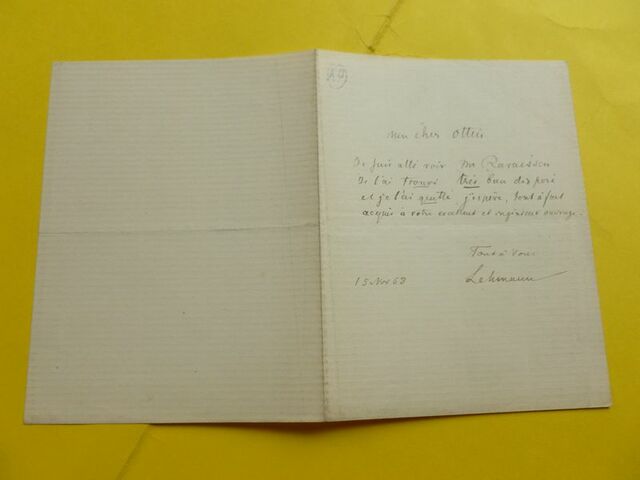 mon cher Ottin
Je suis allé voir Mr Ravaisson
Je l'ai trouvé très bien disposé
et je l'ai quitté j'espère, tout à fait
acquis à votre excellent et ingénieux ouvrage.
Tout à vous
15 Nov 68 Lehmann